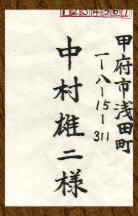 1234567
甲府市浅田町
一-八-15-311
中村雄二様